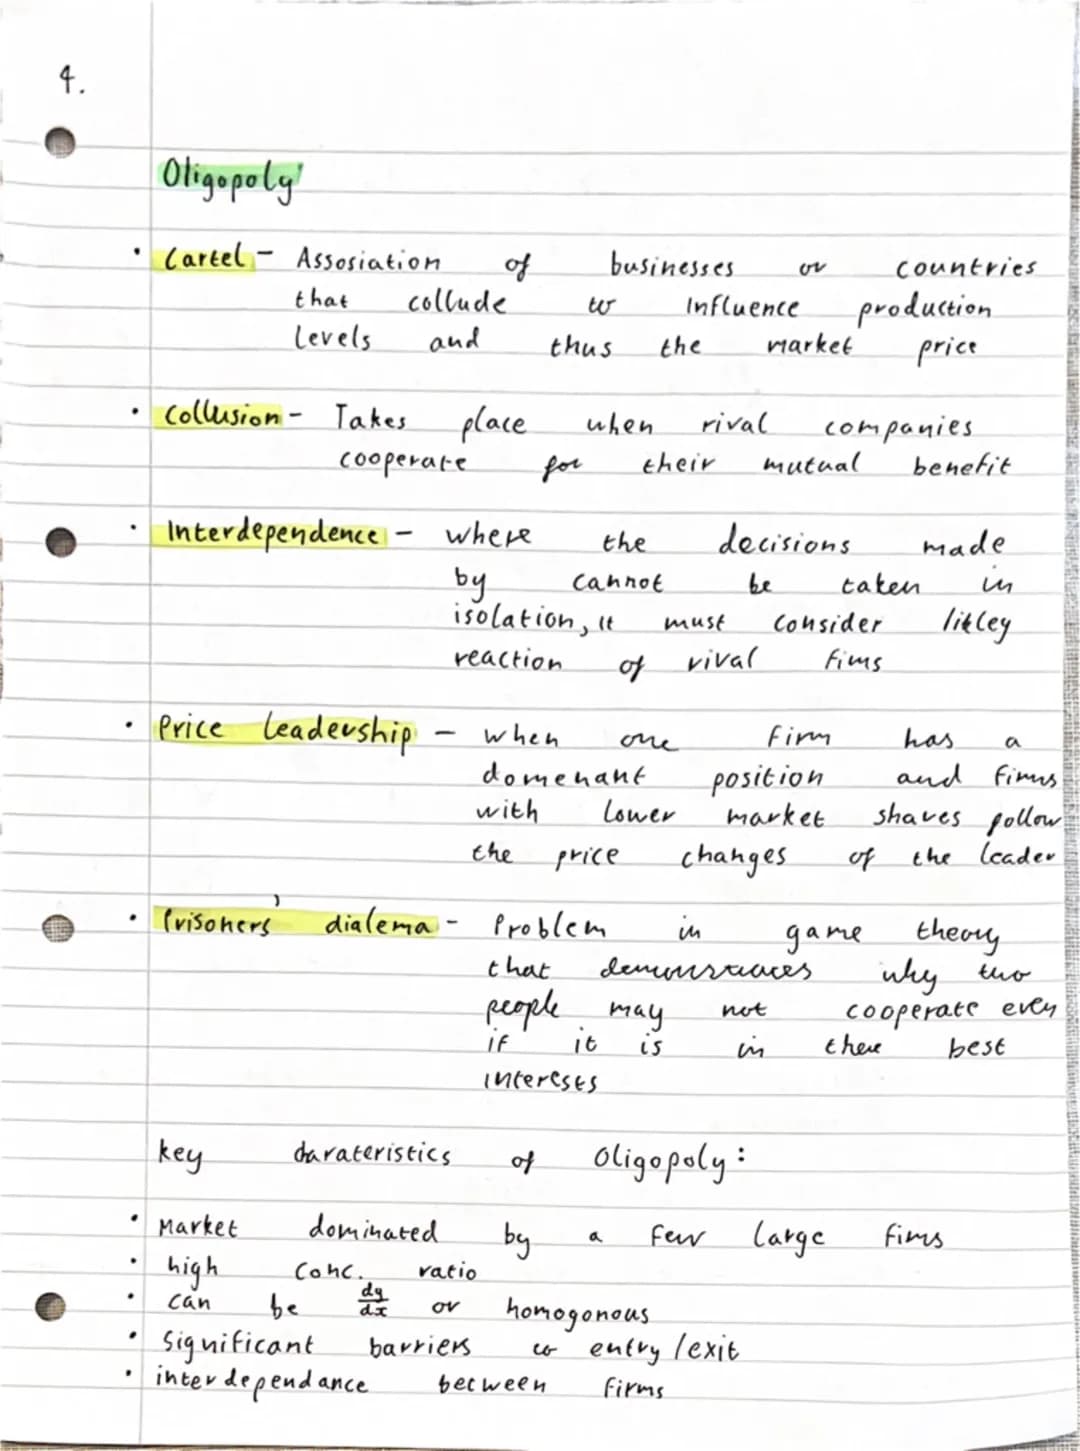 4.
Oligopoly
• Cartel - Assosiation of businesses or countries
that collude to influence production
levels and thus the market price
• Collusion - Takes place when rival companies
cooperate for their mutual benefit
• Interdependence - where the decisions made
by cannot be taken in
isolation, it must consider likley
reaction of rival fims
• Price leadership - when one firm has a
domenant position and firms
with lower market shares follow
the price changes of the leader
• Prisoners' dialema - Problem in game theory
that demonstrates why two
people may not cooperate even
if it is in there best
interests
key charateristics of Oligopoly:
• Market dominated by a few large fims
• high conc. ratio
• can be dy/dx or homogonous
• Significant barriers to entry/exit
• interdependance between firms